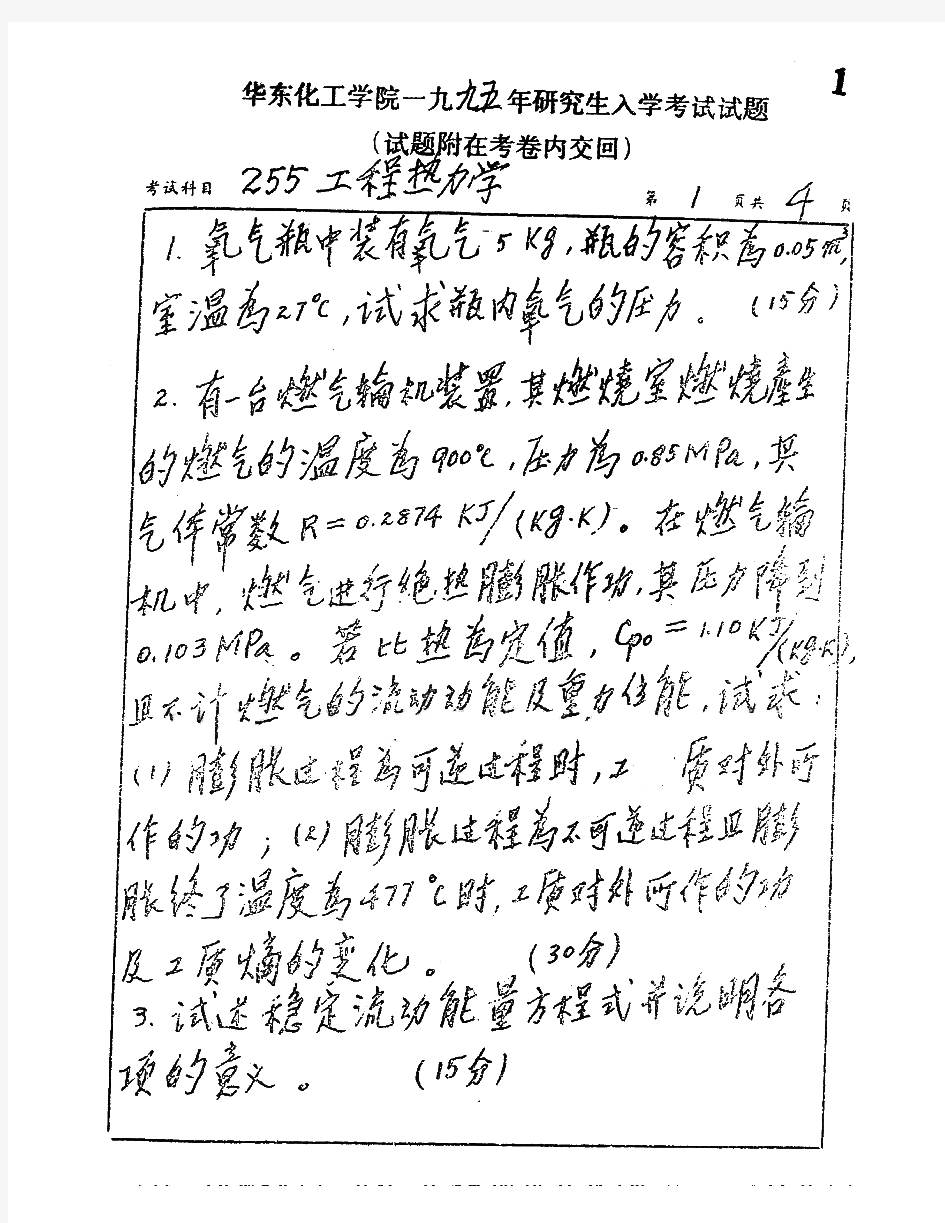 1
华东化工学院一九九五年研究生入学考试试题
(试题附在考卷内交回)
考试科目 255 工程热力学
第 1 页共 4 页
1. 氧气瓶中装有氧气5Kg,瓶的容积為0.05m³,
室温為27℃,试求瓶内氧气的压力。 (15分)
2. 有一台燃气轮机装置,其燃燒室燃燒產生
的燃气的温度為900℃,压力為0.85MPa,其
气体常数R=0.2874 KJ/(Kg·K)。在燃气轮
机中,燃气进行绝热膨胀作功,其压力降到
0.103MPa。若比热為定值,Cpo=1.10KJ/(Kg·K),
且不计燃气的流动动能及重力位能,试求:
(1)膨胀过程為可逆过程时,工 质对外所
作的功;(2)膨胀过程為不可逆过程且膨
胀终了温度為477℃时,工质对外所作的功
及工质熵的变化。 (30分)
3. 试述稳定流动能量方程式并说明各
项的意义。 (15分)